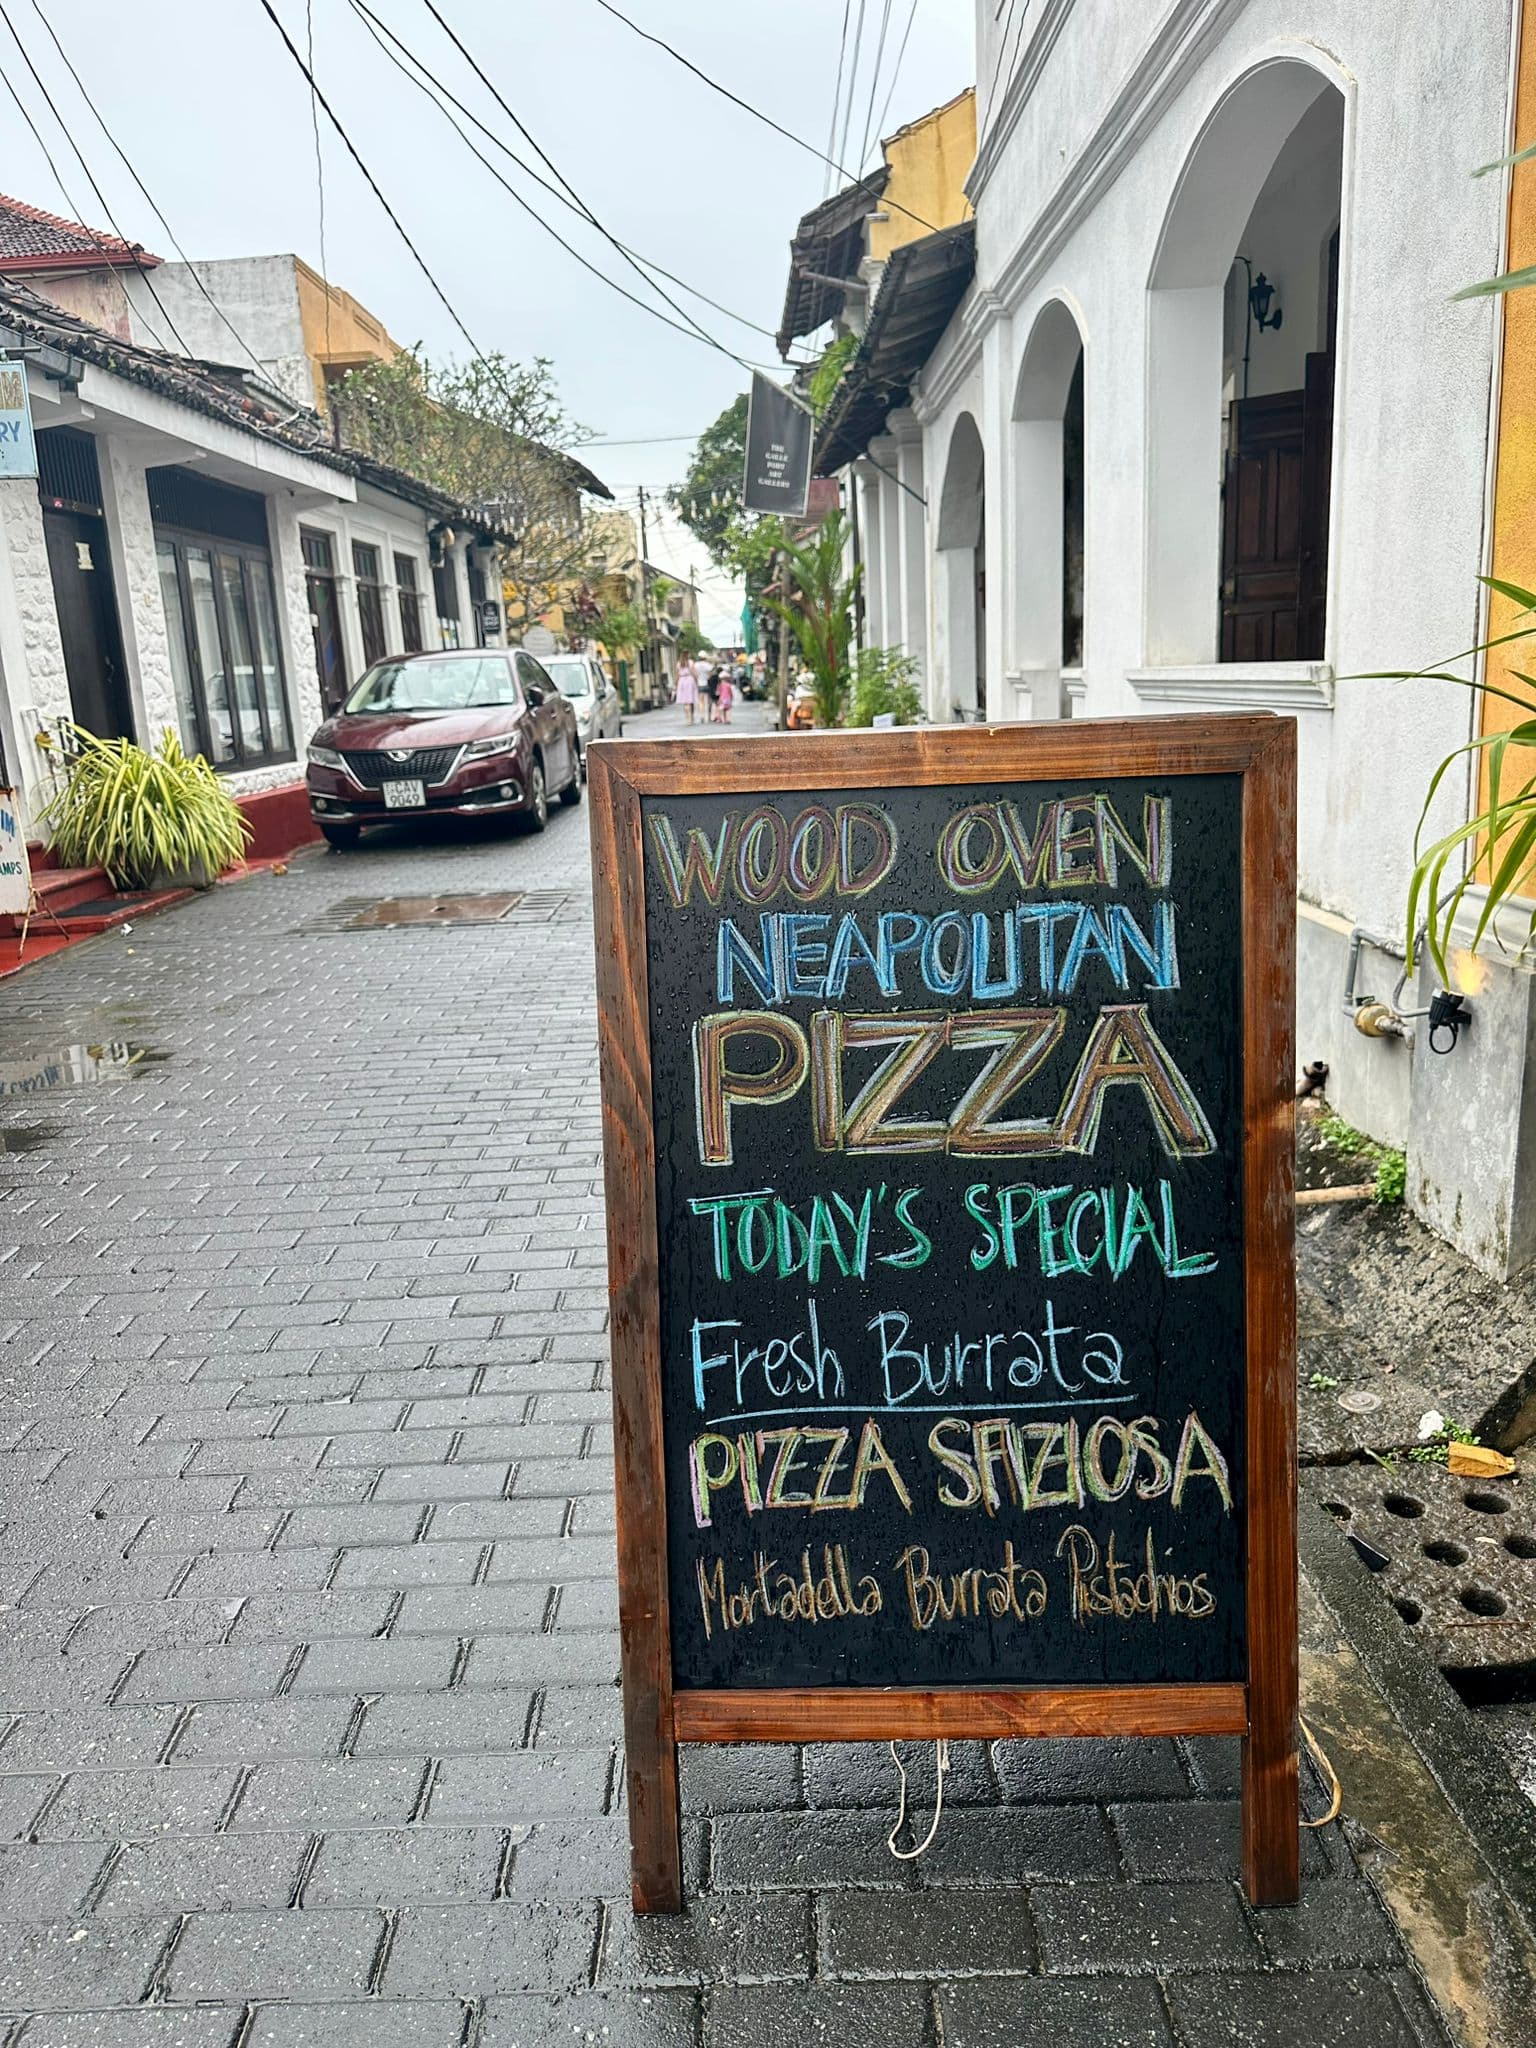 WOOD OVEN
NEAPOLITAN
PIZZA
TODAY'S SPECIAL
Fresh Burrata
PIZZA SFIZIOSA
Mortadella Burrata Pistachios
THE
GALLE
FORT
ART
GALLERY
CAV
9049
RY
AMPS